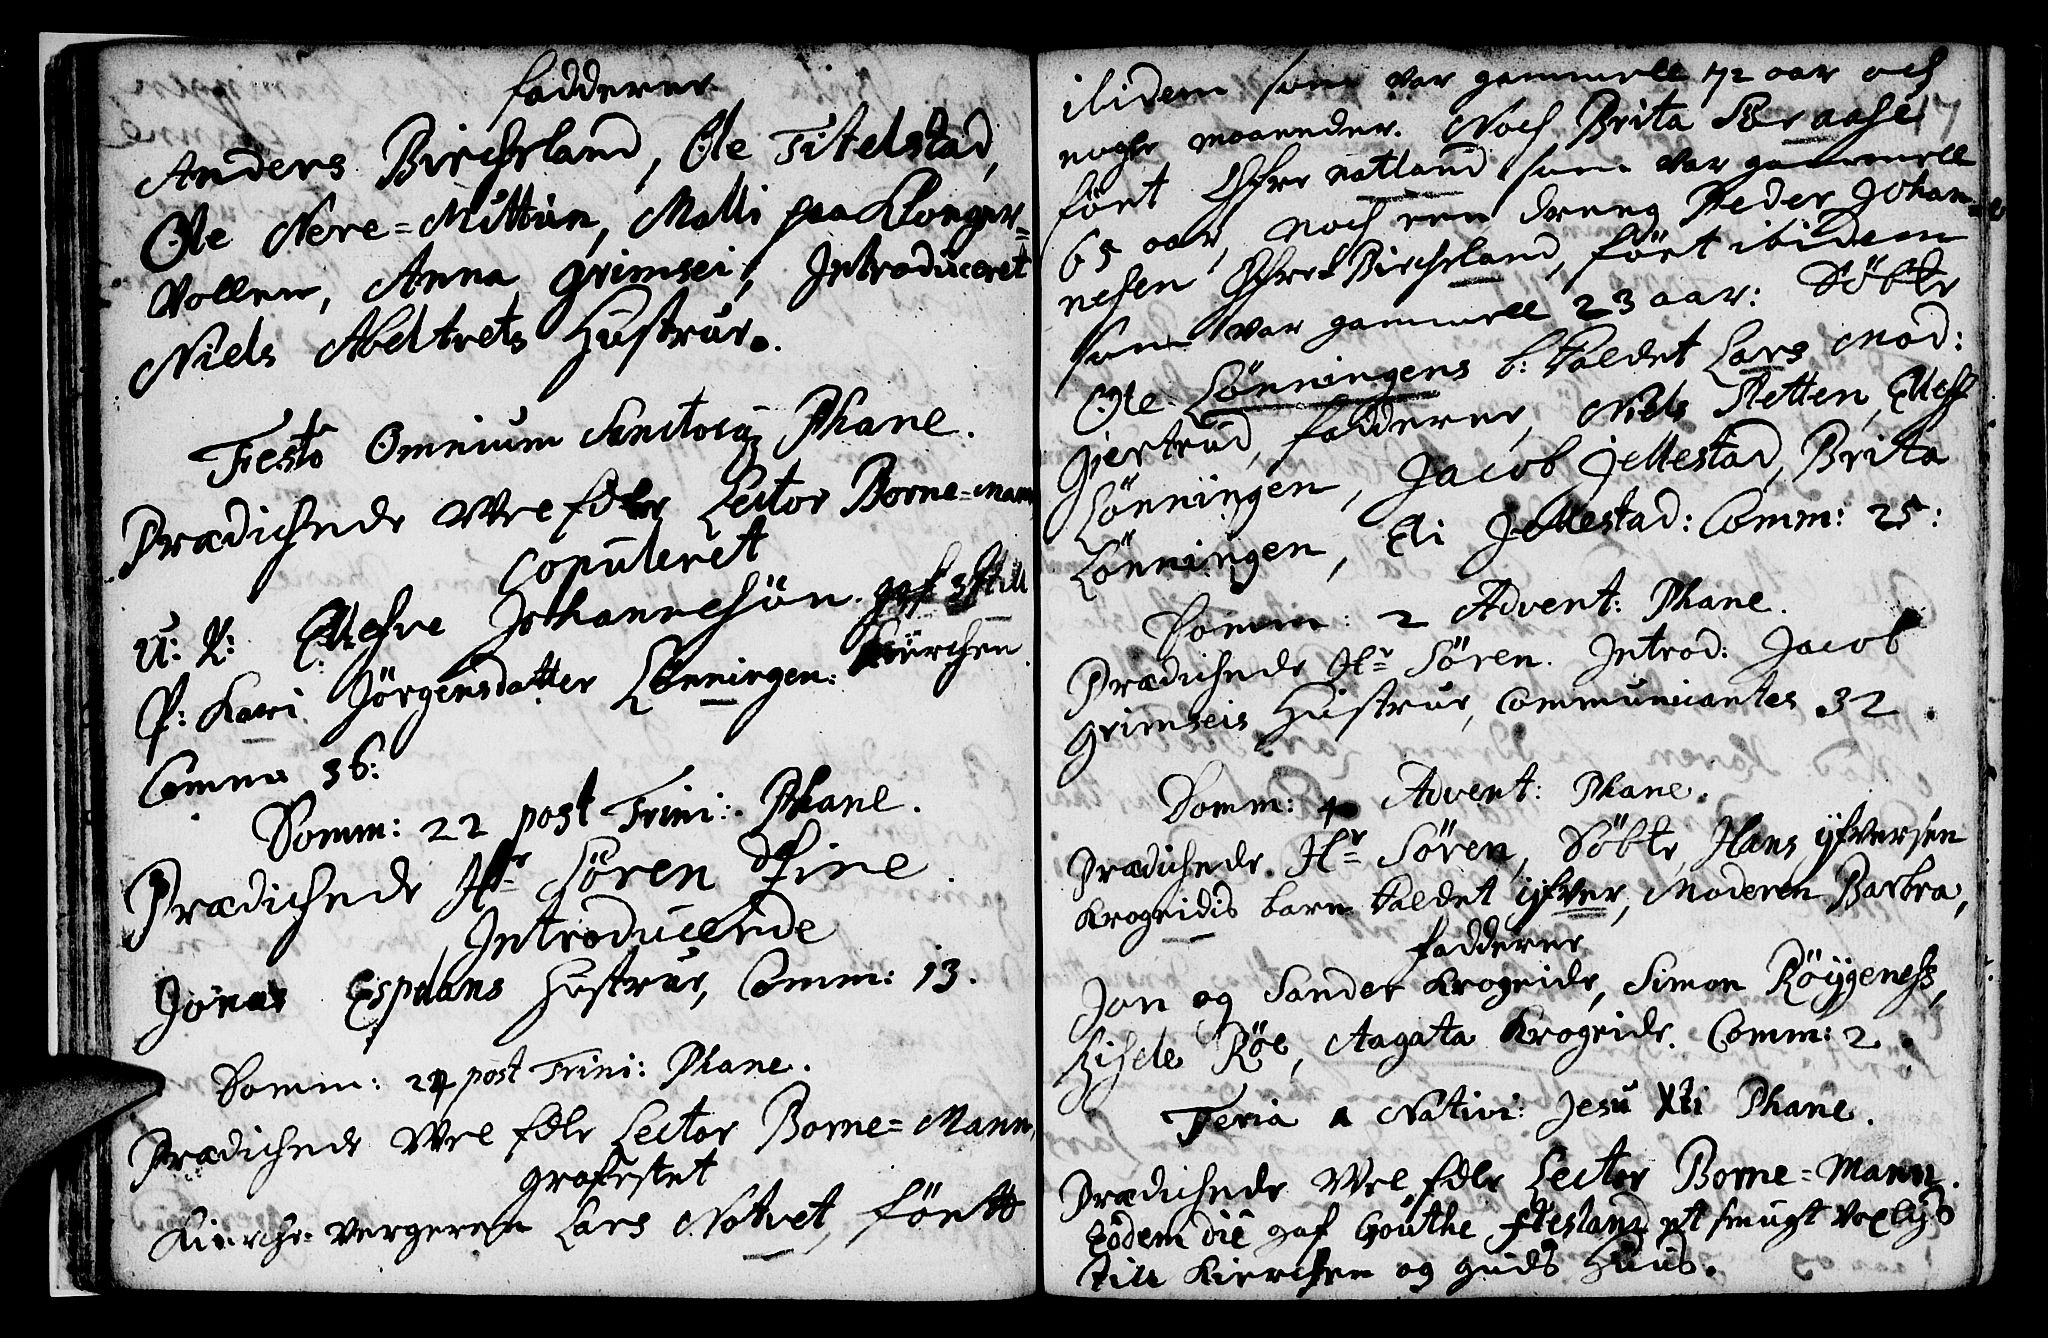 fadderer
Anders Bircheland, Ole Titelstad,
Ole Nere=Mittun, Malli paa Klonger=
vollen, Anna Grimsei, Introduceret
Niels Abeltrets Hustrue.
Festo Omnium Sanctorum Phane.
Prædichede Welfdle Lector Borne=mann
Copuleret
U: K: Ellefve Johannesön. gaf 3
P: Kari Jörgensdatter Lönningen. Kürchen.
Comm 36:
Domm: 22 post Trini: Phane.
Prædichede Hr Sören Fine.
Introducerede
Jonas Espelans Hustrue, Comm: 13.
Domm: 24 post Trini: Phane.
Prædichede Welfdle Lector Borne=Mann,
grafestet
Kirche=vergeren Lars Natvet, föntt
ibidem som var gammell 72 aar och
nogle maaneder. Noch Brita
fönt Öfre natland som var gammell
65 aar, noch een dreng Peder Johan=
nesen Öfre Bircheland, fönt ibidem
som var gammell 23 aar: Döbte
Ole Lönningens b: kaldet Lars Mod:
Giertrud, fadderer, Niels Sletten, Ellef
Lönningen, Jacob Jellestad, Brita
Lönningen, Eli Jellestad: Comm: 25:
Domm: 2 Advent: Phane.
Prædichede Hr Sören. Introd: Jacob
Grimseis Hustrue, Communicantes 32.
Domm: 4 Advent: Phane.
Prædichede. Hr Sören, Döbte, Hans Ifversen
Krogeidis barn kaldet Ifver, Moderen Barbra,
fadderer
Jon og Sander Krogeide, Simon Röijgenes,
Zidsele Röe, Aagata Krogeide. Comm: 2.
Feria 1 Nativi: Jesu Xti Phane.
Prædichede Welfdle Lector Borne=Mann.
Eodem die gaf Gouthe Flesland et smugt Voxlys
till Kierchen og guds Huus.